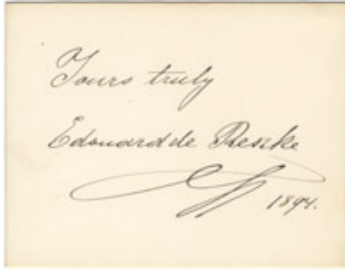 Yours truly
Edouard de Reszke
1894.